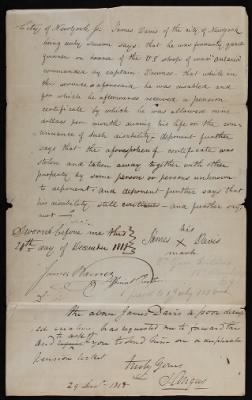 City of Newyork Ss James Davis of the city of Newyork
being duly sworn says that he was formerly quarter
gunner on board of the U.S. sloop of war Ontario
commanded by captain Downes. that while on
the service aforesaid he was disabled and
for which he afterwards received a pension
certificate by which he was allowed nine
dollars per month during his life or the con-
tinuance of such disability. deponent further
says that the aforesaid certificate was
stolen and taken away together with other
property by some person or persons unknown
to deponent. and deponent further says that
his disability still continues and further says
not
Sworn before me this
28th day of December 1818
James
his
X
mark
Davis
James
the above James Davis is a poor
has requested me to forward this
and to you to send him on a duplicate
Pension Ticket
truly Yours
29 Decr. 1818